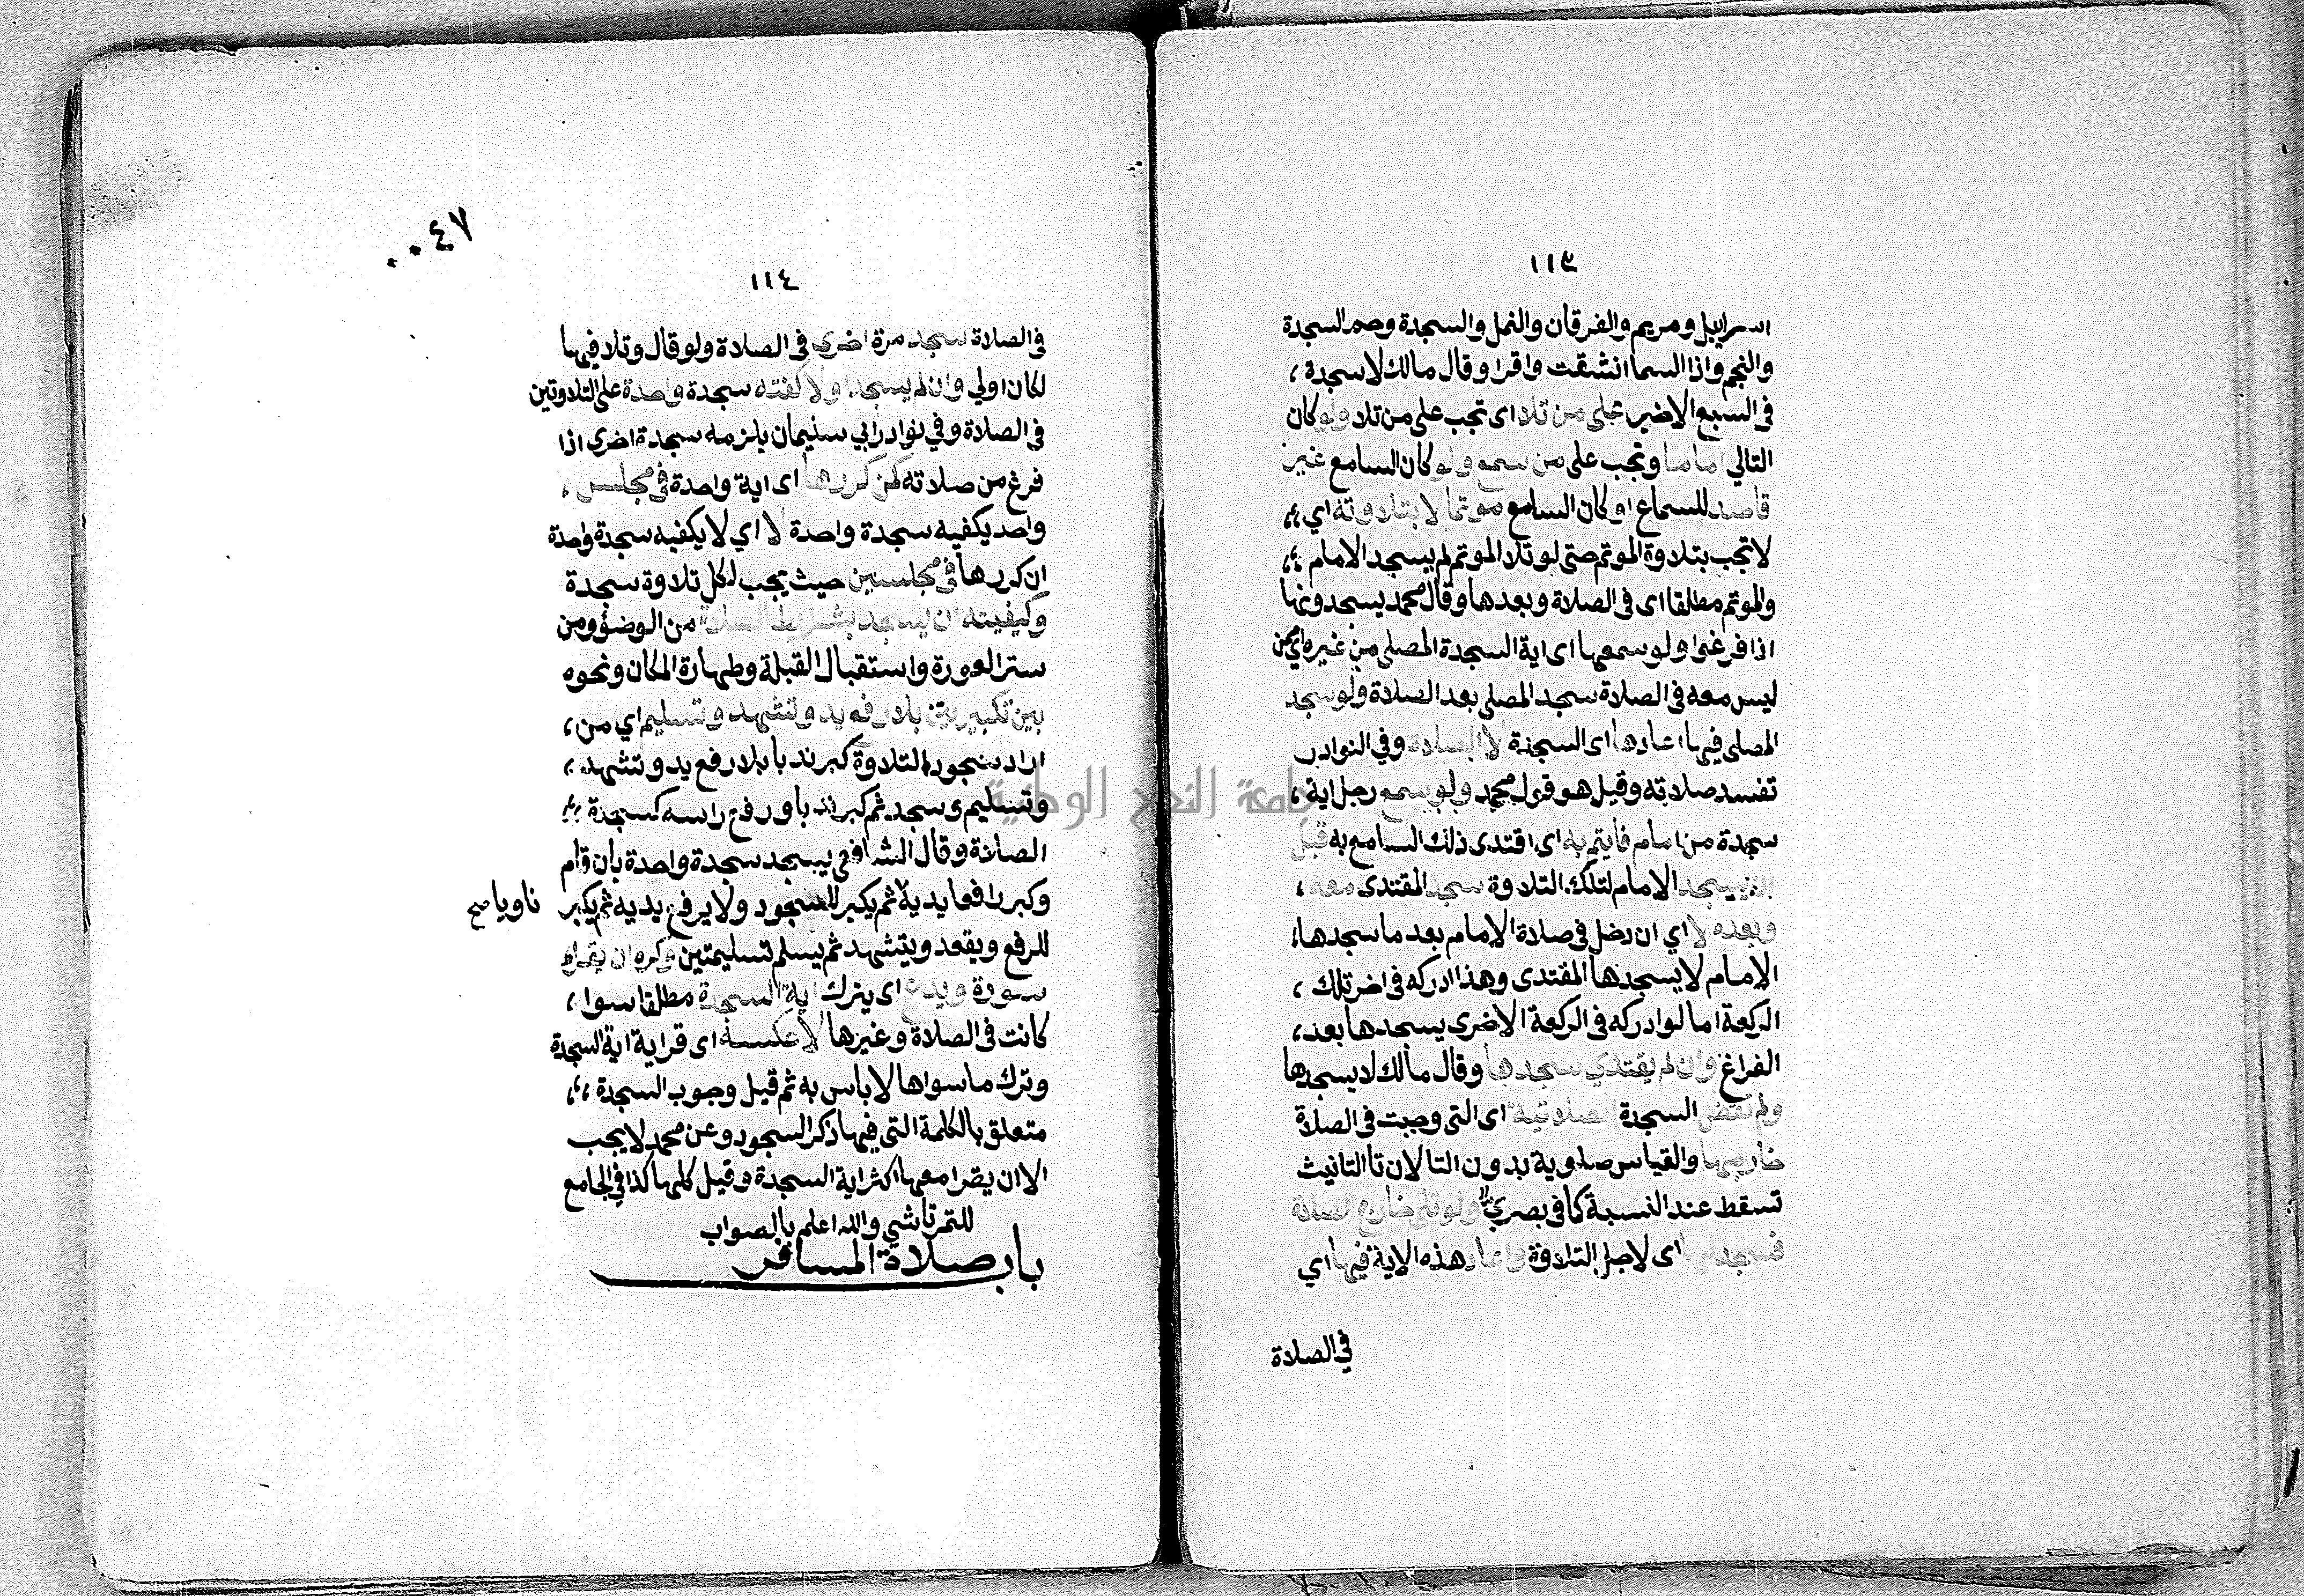 ١١٣
اسراييل ومريم والفرقان والنمل والسجدة وحم السجدة
والنجم واذا السما انشقت واقرا وقال مالك لا سجدة
في السبع الاخير على من تلا اى تجب على من تلا ولو كان
التالي اماما وتجب على من سمع ولو كان السامع غير
قاصد للسماع او كان السامع موتما لا بتلاوته اي
لا تجب بتلاوة الموتم حتى لو تلا الموتم لم يسجد الامام
والموتم مطلقا اى فى الصلاة وبعدها وقال محمد يسجدونها
اذا فرغوا ولو سمعها اى اية السجدة المصلى من غيره اي ممن
ليس معه فى الصلاة سجد المصلى بعد الصلاة ولو سجد
المصلى فيها اعادها اى السجدة لا الصلاة وفي النوادر
تفسد صلاته وقيل هو قول محمد ولو سمع رجل اية
سجدة من امام فايتم به اى اقتدى ذلك السامع به قبل
ان يسجد الامام لتلك التلاوة سجد المقتدى معه
وبعده لا اي ان دخل فى صلاة الامام بعد ما سجدها
الامام لا يسجدها المقتدى وهذا ادركه فى اخر تلك
الركعة اما لو ادركه فى الركعة الاخرى يسجدها بعد
الفراغ وان لم يقتدي سجدها وقال مالك لا يسجدها
ولم تقض السجدة الصلاتية اى التى وجبت فى الصلاة
خارجها والقياس صلوية بدون التا لان تا التانيث
تسقط عند النسبة كما فى بصري ولو تلى خارج الصلاة
فسجد لها اى لاجل التلاوة واعاد هذه الاية فيها اي
في الصلاة
٠٠٤٧
١١٤
فى الصلاة سجد مرة اخرى فى الصلاة ولو قال وتلا فيها
لكان اولي وان لم يسجد اولا كفته سجدة واحدة على التلاوتين
فى الصلاة وفي نوادر ابي سليمان يلزمه سجدة اخرى اذا
فرغ من صلاته كمن كررها اى اية واحدة فى مجلس
واحد يكفيه سجدة واحدة لا اي لا يكفيه سجدة واحدة
ان كررها فى مجلسين حيث يجب لكل تلاوة سجدة
وكيفيته ان يسجد بشرايط الصلاة من الوضؤ ومن
ستر العورة واستقبال القبلة وطهارة المكان ونحوه
بين تكبيرتين بلا رفع يد وتشهد وتسليم اي من
اراد سجود التلاوة كبر ندبا بلا رفع يد وتشهد
وتسليم وسجد ثم كبر ندبا ورفع راسه كسجدة
الصلاة وقال الشافعي يسجد سجدة واحدة بان قام
وكبر رافعا يديه ثم يكبر للسجود ولا يرفع يديه ثم يكبر
ناويا صح
للرفع ويقعد ويتشهد ثم يسلم تسليمتين وكره ان يقرا
سورة ويدع اى يترك اية السجدة مطلقا سوا
كانت فى الصلاة وغيرها لا عكسه اى قراية اية السجدة
وترك ما سواها لا باس به ثم قيل وجوب السجدة
متعلق بالكلمة التي فيها ذكر السجود وعن محمد لا يجب
الا ان يقرا معها اكثر اية السجدة وقيل كلها كذا في الجامع
للتمرتاشي والله اعلم بالصواب
باب صلاة المسافر
جامعة النجاح الوطنية